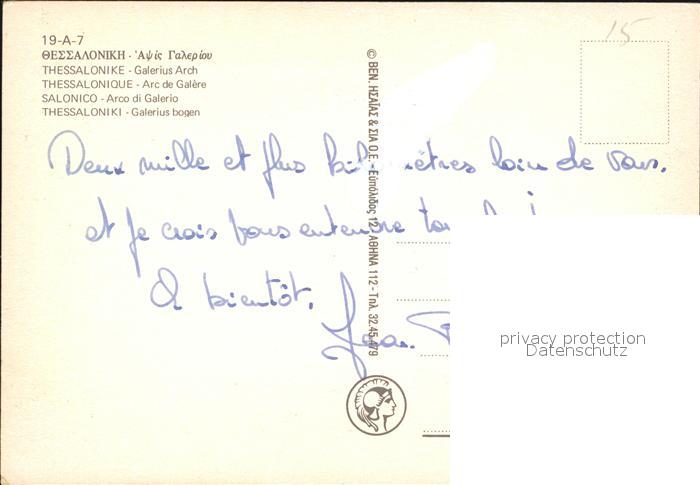 15
19-A-7
ΘΕΣΣΑΛΟΝΙΚΗ - Ἁψὶς Γαλερίου
THESSALONIKE - Galerius Arch
THESSALONIQUE - Arc de Galère
SALONICO - Arco di Galerio
THESSALONIKI - Galerius bogen
© ΒΕΝ. ΗΣΑΪΑΣ & ΣΙΑ Ο.Ε. - Εὐπόλιδος 12, ΑΘΗΝΑ 112 - Τηλ. 32.45.479
Deux mille et plus kilomètres loin de vous.
et je crois vous entendre
A bientôt.
Jean.
privacy protection
Datenschutz